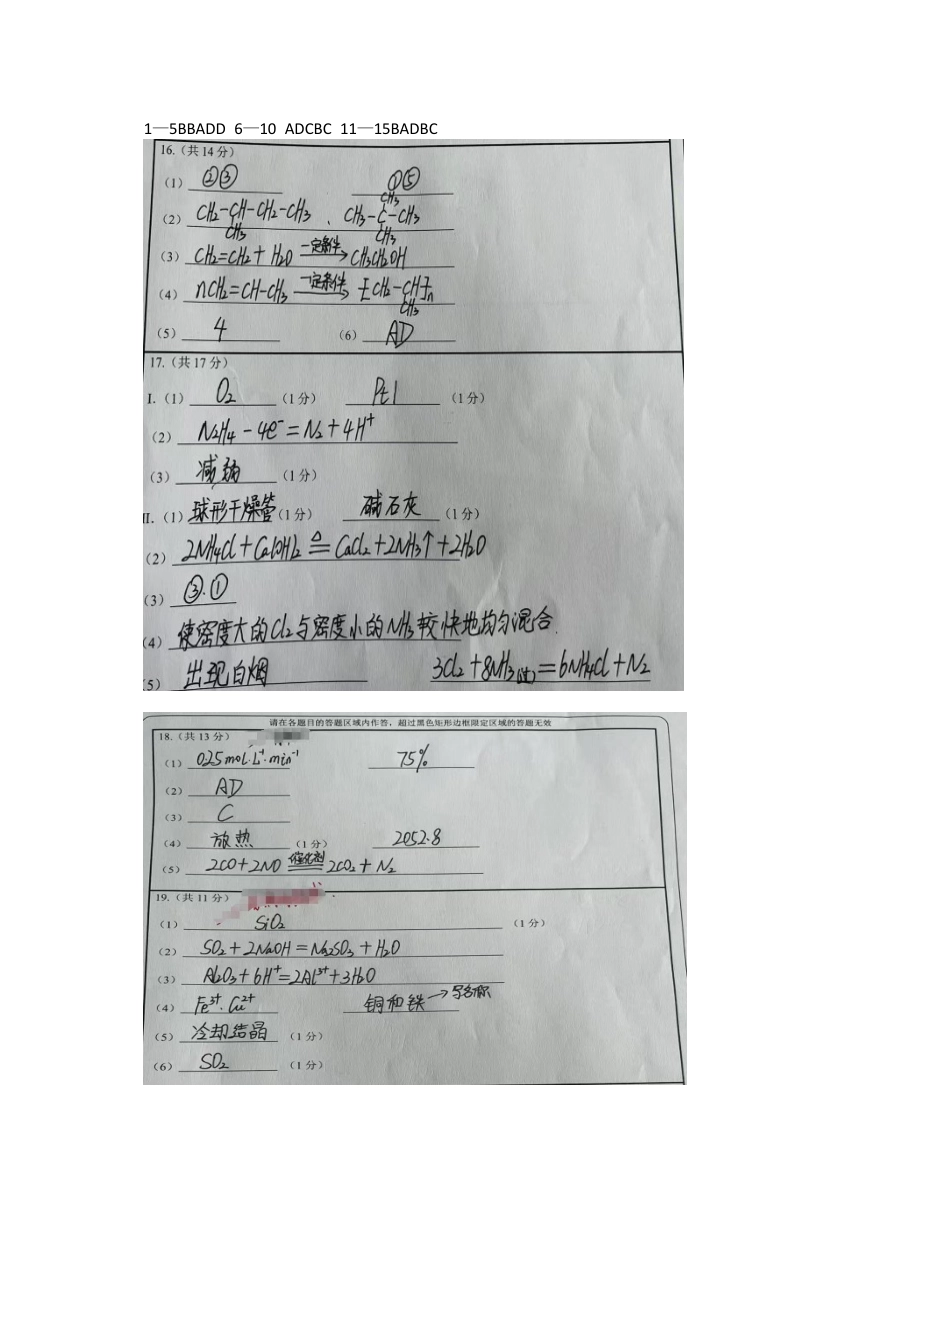 1—5BBADD 6—10 ADCBC 11—15BADBC
16.（共 14 分）
（1） ②③ ①⑤
CH₃
（2） CH₂-CH-CH₂-CH₃ 、 CH₃-C-CH₃
CH₃ CH₃
（3） CH₂=CH₂+H₂O 一定条件→ CH₃CH₂OH
（4） nCH₂=CH-CH₃ 一定条件→ -[CH₂-CH]-n
CH₃
（5） 4 （6） AD
17.（共 17 分）
I.（1） O₂ （1 分） Pt1 （1 分）
（2） N₂H₄-4e⁻=N₂+4H⁺
（3） 减弱 （1 分）
II.（1） 球形干燥管（1 分） 碱石灰 （1 分）
（2） 2NH₄Cl+Ca(OH)₂ ≜ CaCl₂+2NH₃↑+2H₂O
（3） ③.①
（4） 使密度大的Cl₂与密度小的NH₃较快地均匀混合.
（5） 出现白烟 3Cl₂+8NH₃(过)=6NH₄Cl+N₂
请在各题目的答题区域内作答，超过黑色矩形边框限定区域的答题无效
18.（共 13 分）
（1） 0.25mol·L⁻¹·min⁻¹ 75%
（2） AD
（3） C
（4） 放热 （1 分） 2052.8
（5） 2CO+2NO 催化剂= 2CO₂+N₂
19.（共 11 分）
（1） SiO₂ （1 分）
（2） SO₂+2NaOH=Na₂SO₃+H₂O
（3） Al₂O₃+6H⁺=2Al³⁺+3H₂O
（4） Fe³⁺.Cu²⁺ 铜和铁→写名称
（5） 冷却结晶 （1 分）
（6） SO₂ （1 分）